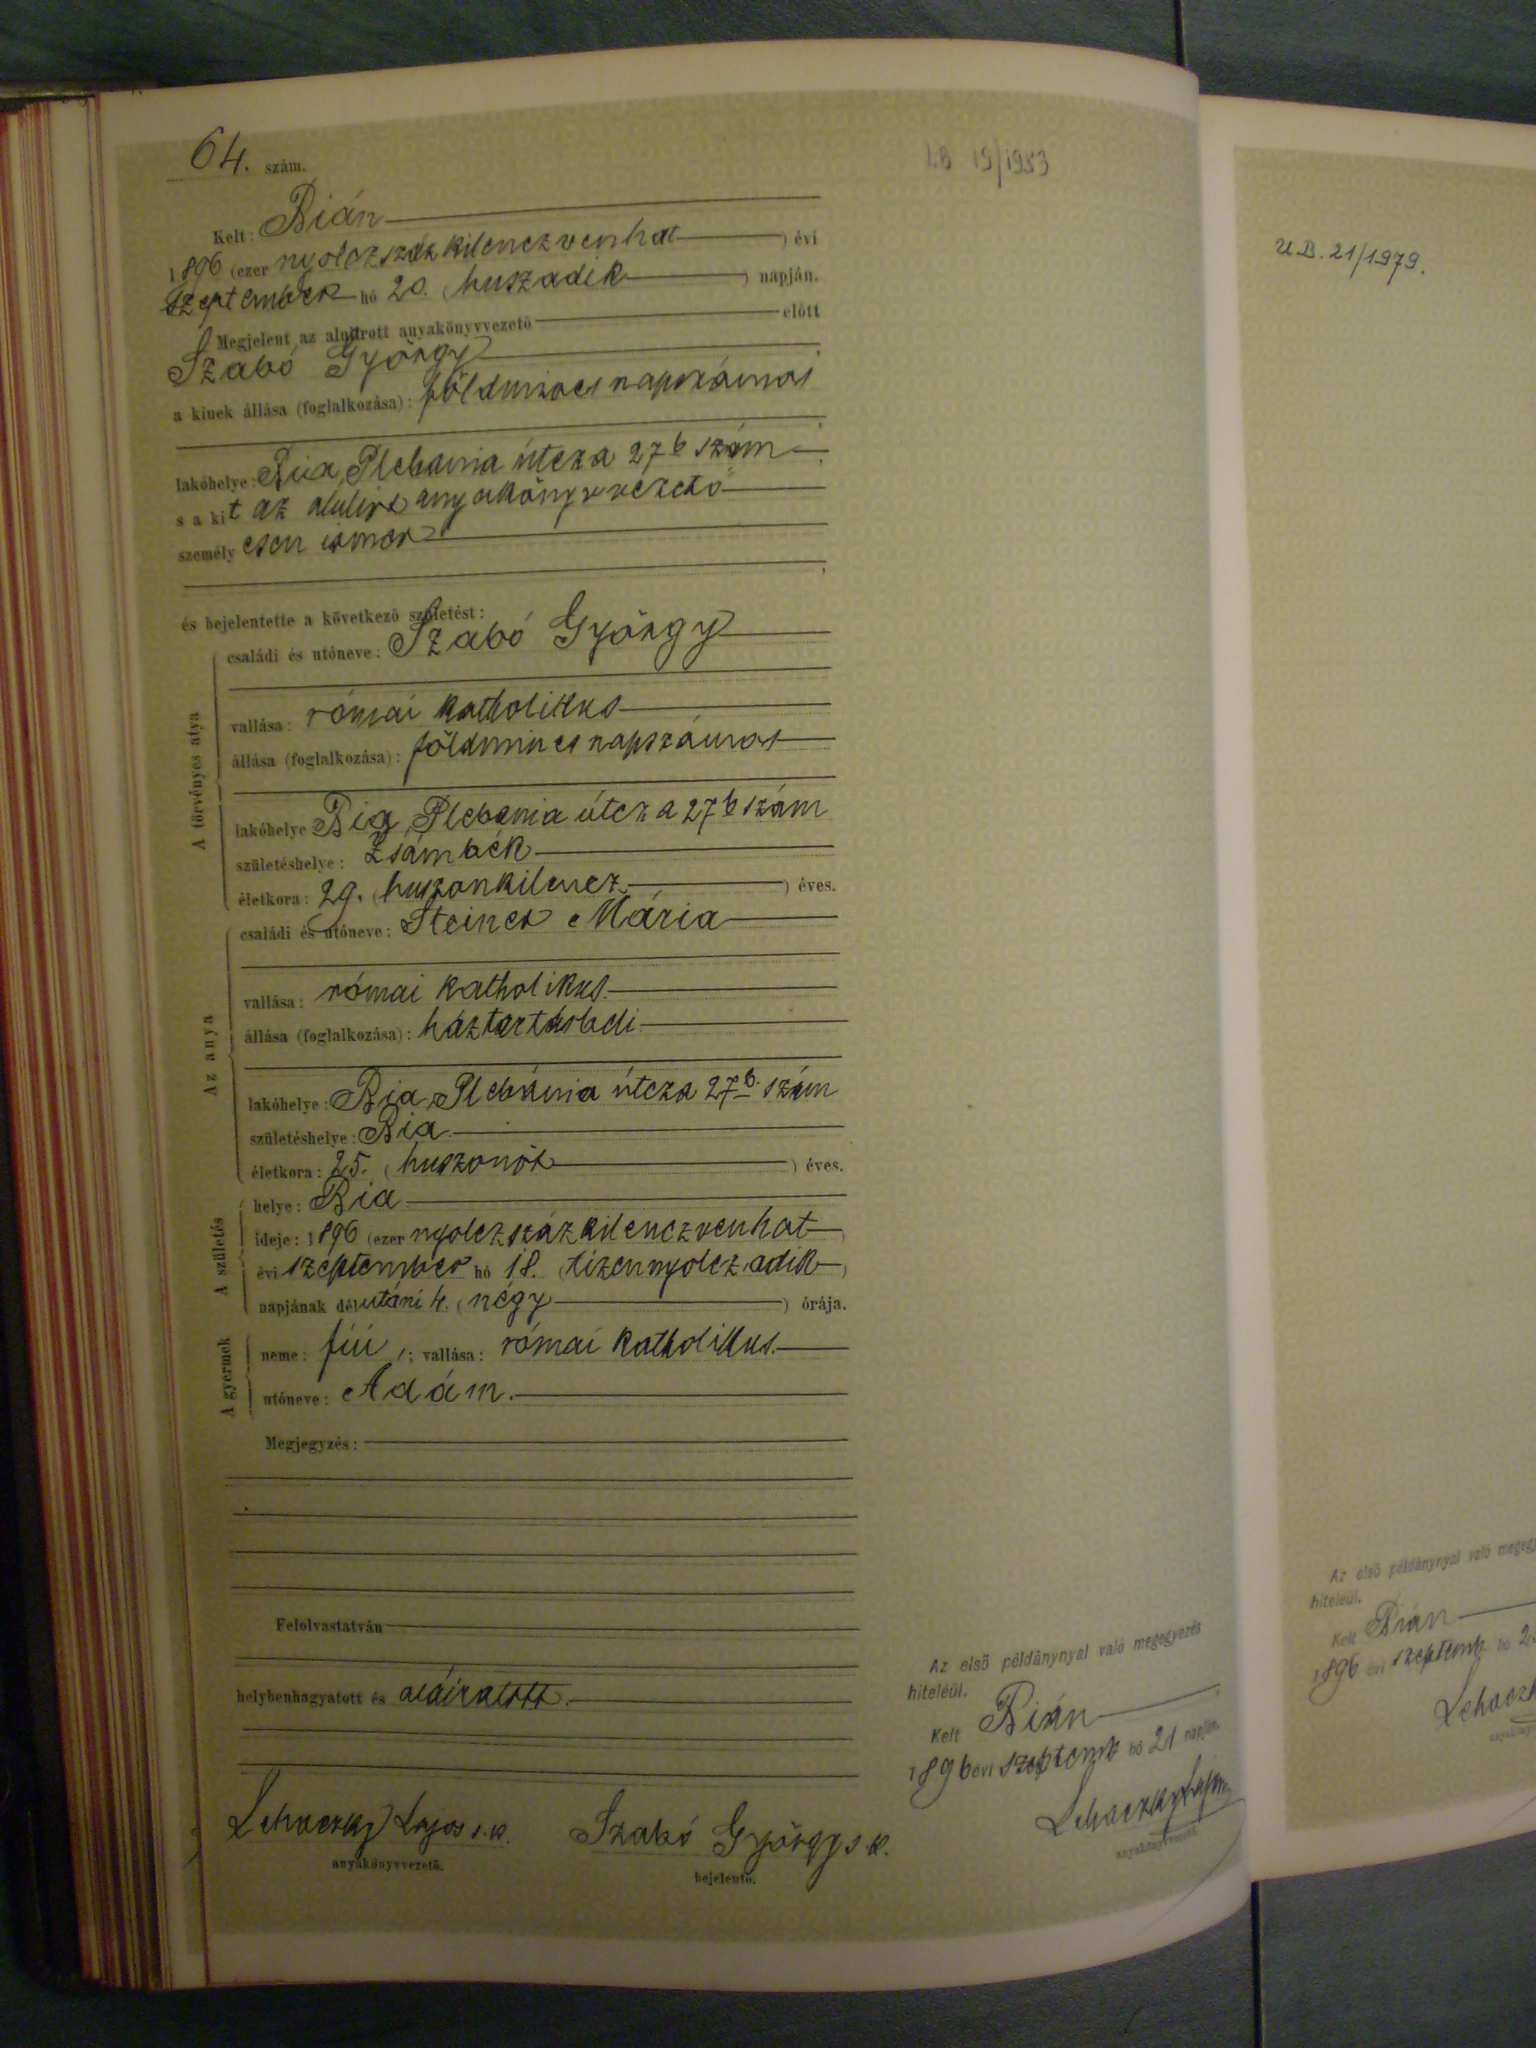 64. szám.
I.B 19/1983
Kelt: Bián
1896 (ezer nyolczszáz kilenczvenhat ) évi
szeptember hó 20. (huszadik ) napján.
Megjelent az alulírott anyakönyvvezető előtt
Szabó György
a kinek állása (foglalkozása): földmíves napszámos
lakóhelye: Bia, Plebánia útcza 27 b szám
s a kit az alulírt anyakönyvvezető
személyesen ismer
és bejelentette a következő születést:
A törvényes atya
családi és utóneve: Szabó György
vallása: római katholikus
állása (foglalkozása): földmíves napszámos
lakóhelye Bia, Plebania útcza 27 b szám
születéshelye: Zsámbék
életkora: 29. (huszonkilencz ) éves.
Az anya
családi és utóneve: Steiner Mária
vallása: római katholikus.
állása (foglalkozása): háztartásbeli
lakóhelye: Bia, Plebánia útcza 27 b. szám
születéshelye: Bia
életkora: 25. (huszonöt ) éves.
A születés
helye: Bia
ideje: 1896 (ezer nyolczszáz kilenczvenhat )
évi szeptember hó 18. (tizennyolczadik )
napjának délutáni 4. (négy ) órája.
A gyermek
neme: fiú ; vallása: római katholikus.
utóneve: Ádám.
Megjegyzés:
Felolvastatván
helybenhagyatott és aláiratott.
Lehoczky Lajos s. k.
anyakönyvvezető.
Szabó György s. k.
bejelentő.
Az első példánynyal való megegyezés
hiteléül.
Kelt Bián
1896 évi szeptemb hó 21 napján.
Lehoczky Lajos
anyakönyvvezető
U.B. 21/1979.
Az első példánynyal való
hiteléül.
Kelt Bián
1896 évi szeptemb. hó